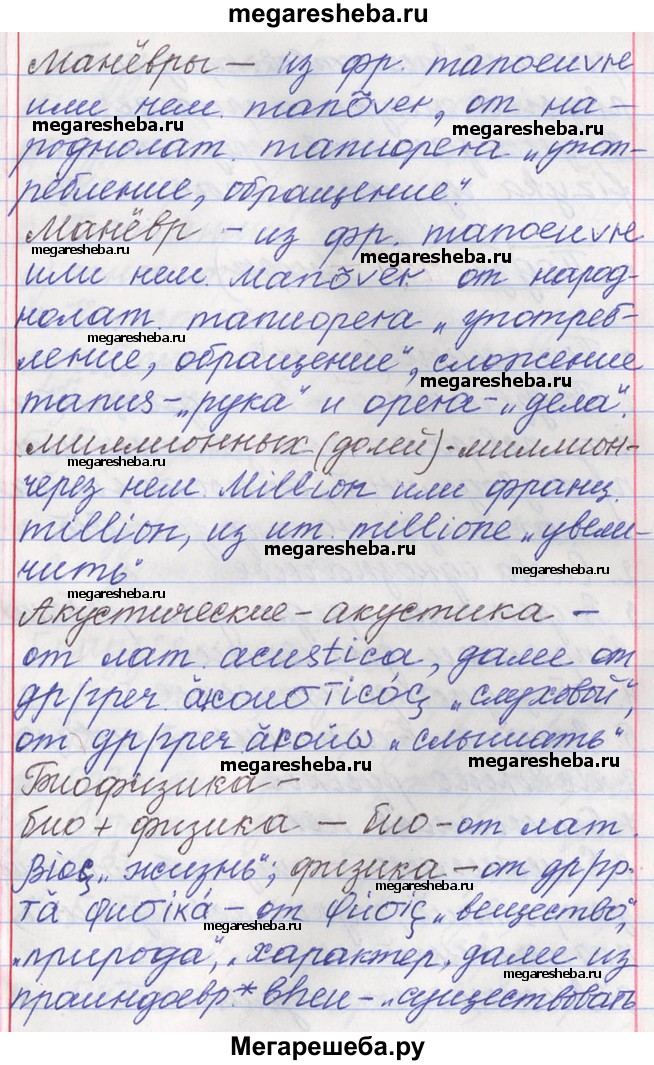 megaresheba.ru
Манёвры — из фр. manoeuvre
или нем. manőver, от на-
megaresheba.ru megaresheba.ru
роднолат. manuopera „упот-
ребление, обращение".
Манёвр - из фр. manoeuvre
megaresheba.ru megaresheba.ru
или нем. Manőver от народ-
нолат manuopera „употреб-
megaresheba.ru megaresheba.ru
ление, обращение", сложение
megaresheba.ru
manus-„рука" и opera-„дела".
миллионных (долей) - миллион-
megaresheba.ru
через нем. Million или франц.
million, из ит. millione „увели-
megaresheba.ru
чить"
megaresheba.ru
Акустические - акустика -
megaresheba.ru
от лат. acustica, далее от
др/греч. ἀκουστικός „слуховой",
от др/греч ἀκούω „слышать"
megaresheba.ru megaresheba.ru
Биофизика -
био + физика — био-от лат.
βίος „жизнь"; физика — от др/гр.
megaresheba.ru
τά φυσικά - от φύσις „вещество",
megaresheba.ru
„природа", „характер, далее из
megaresheba.ru
праиндоевр.* bheu - „существовать
megaresheba.ru
Мегарешеба.ру